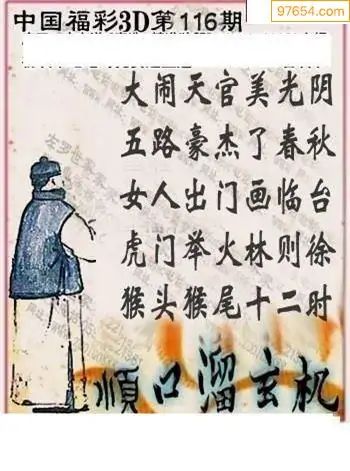 97654.com
中国福彩3D第116期
大闹天官美光阴
五路豪杰了春秋
女人出门画临台
虎门举火林则徐
猴头猴尾十二时
順口溜玄机